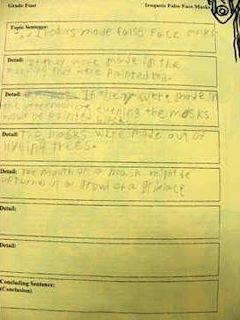 Grade Four Iroquois False Face Masks
Topic Sentence:
made False Face
Detail: If they were made in the
morning they were painted red.
Detail: If they were made in
the afternoon evening the masks
would be painted
Detail: The masks were made out of
living trees.
Detail: The mouth of a mask might be
turned in a frown or a grimace
Detail:
Detail:
Concluding Sentence:
(Conclusion)